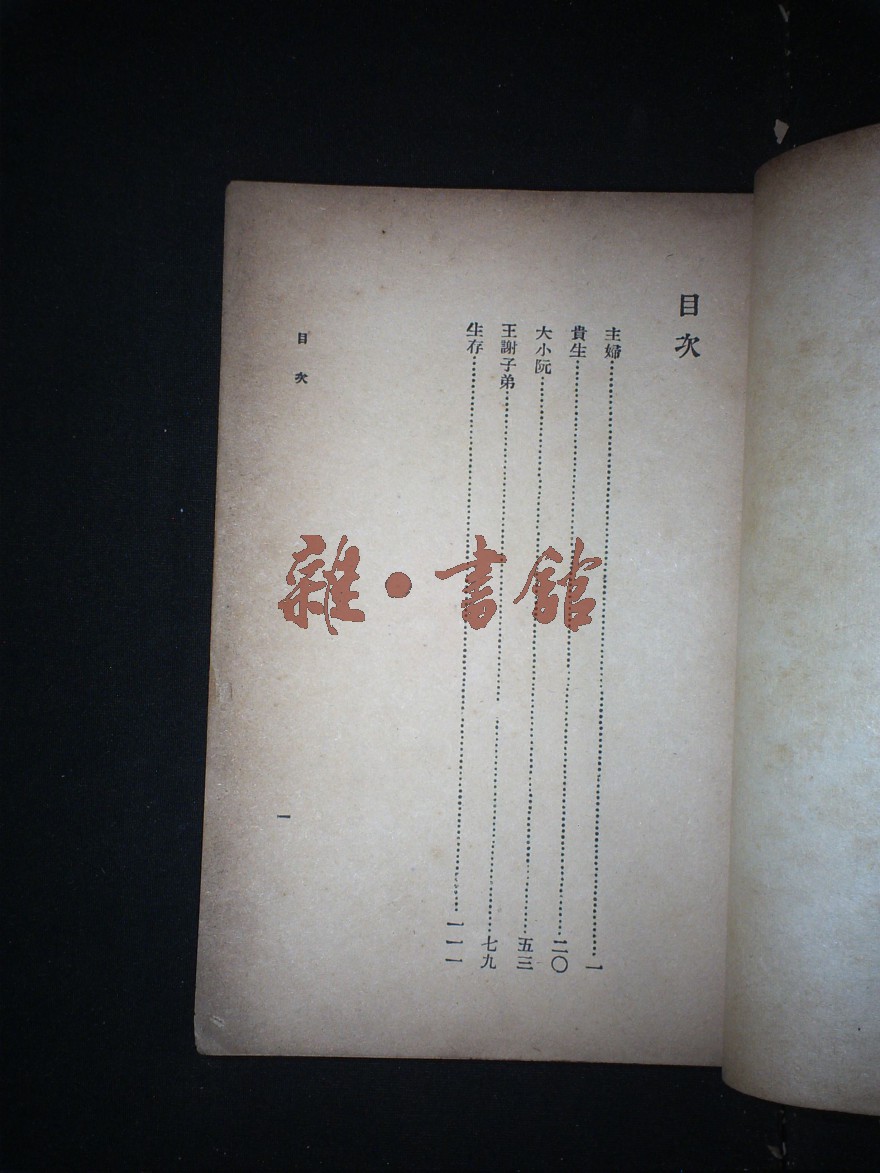 目次
主婦……一
貴生……二〇
大小阮……五三
王謝子弟……七九
生存……一一一
目次
一
雜·書館